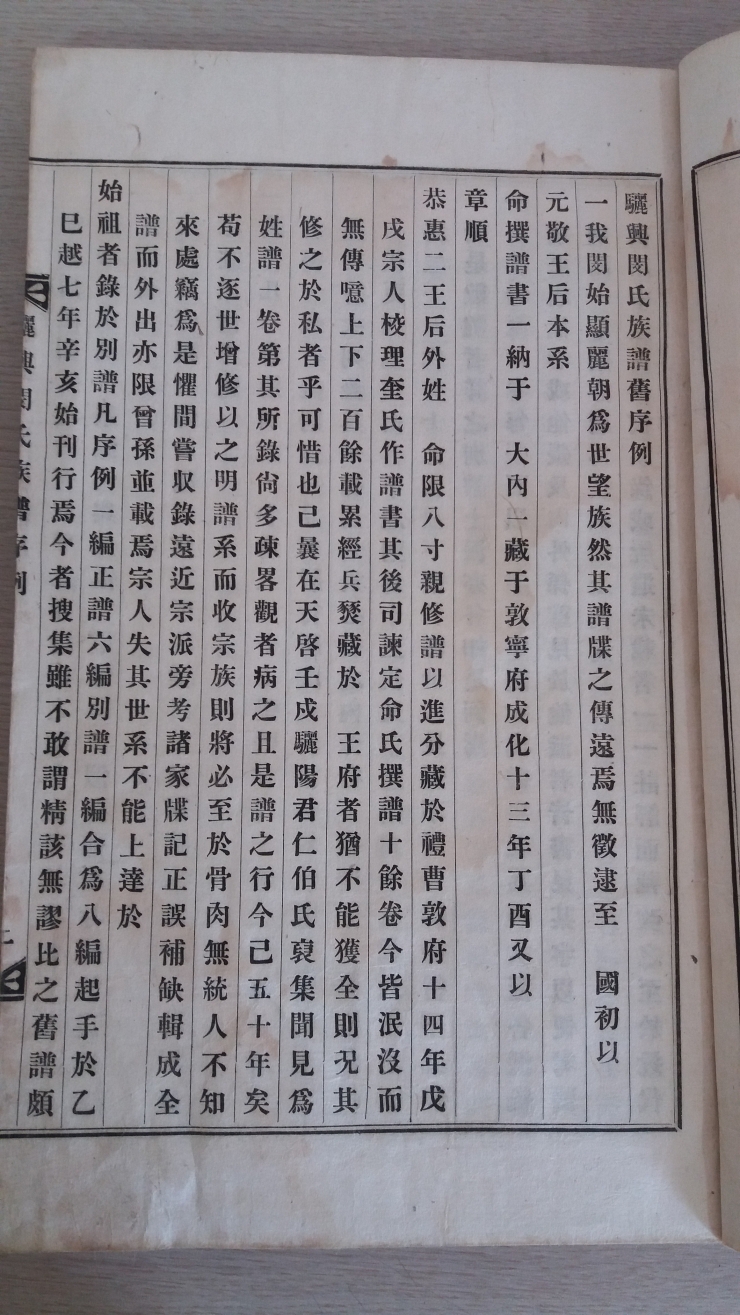 驪興閔氏族譜舊序例
一我閔始顯麗朝爲世望族然其譜牒之傳遠焉無徵逮至　國初以
元敬王后本系
命撰譜書一納于　大內一藏于敦寧府成化十三年丁酉又以
章順
恭惠二王后外姓　命限八寸親修譜以進分藏於禮曹敦府十四年戊
戌宗人校理奎氏作譜書其後司諫定命氏撰譜十餘卷今皆泯沒而
無傳噫上下二百餘載累經兵燹藏於　王府者猶不能獲全則況其
修之於私者乎可惜也已曩在天啓壬戌驪陽君仁伯氏裒集聞見爲
姓譜一卷第其所錄尙多疎畧觀者病之且是譜之行今已五十年矣
苟不逐世增修以之明譜系而收宗族則將必至於骨肉無統人不知
來處竊爲是懼間嘗収錄遠近宗派旁考諸家牒記正誤補缺輯成全
譜而外出亦限曾孫並載焉宗人失其世系不能上達於
始祖者錄於別譜凡序例一編正譜六編別譜一編合爲八編起手於乙
巳越七年辛亥始刊行焉今者搜集雖不敢謂精該無謬比之舊譜頗
驪興閔氏族譜序例